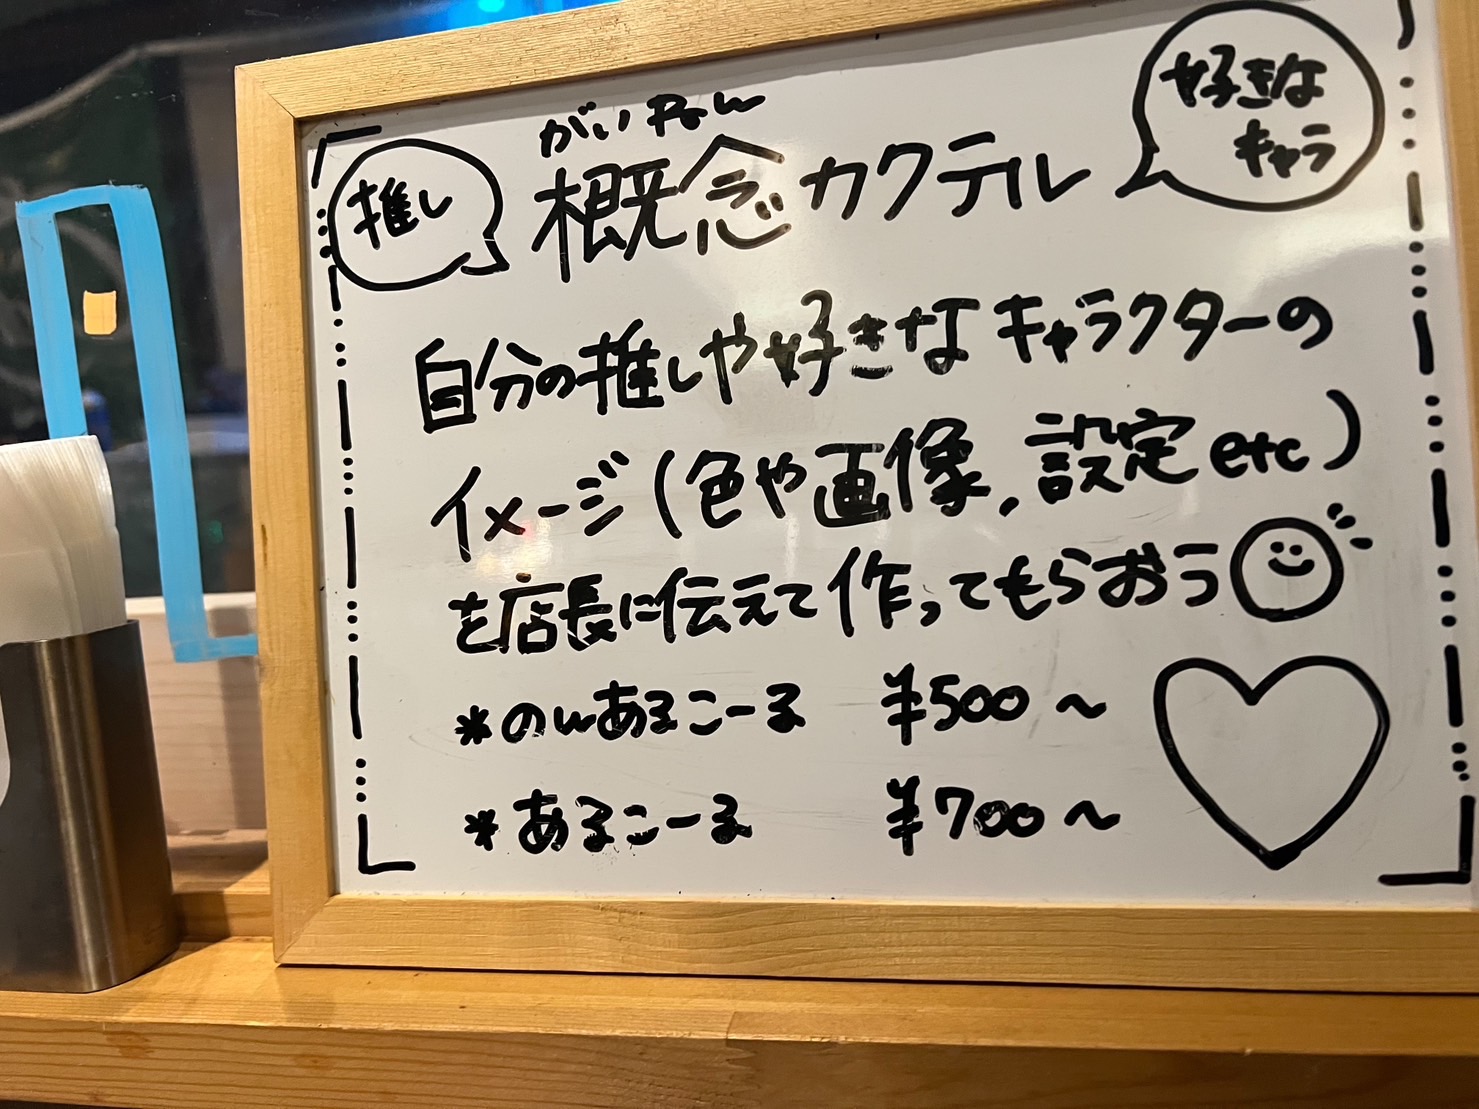 推し
がいねん
概念カクテル
好きな
キャラ
自分の推しや好きなキャラクターの
イメージ(色や画像、設定etc)
を店長に伝えて作ってもらおう
*のんあるこーる ¥500~
*あるこーる ¥700~